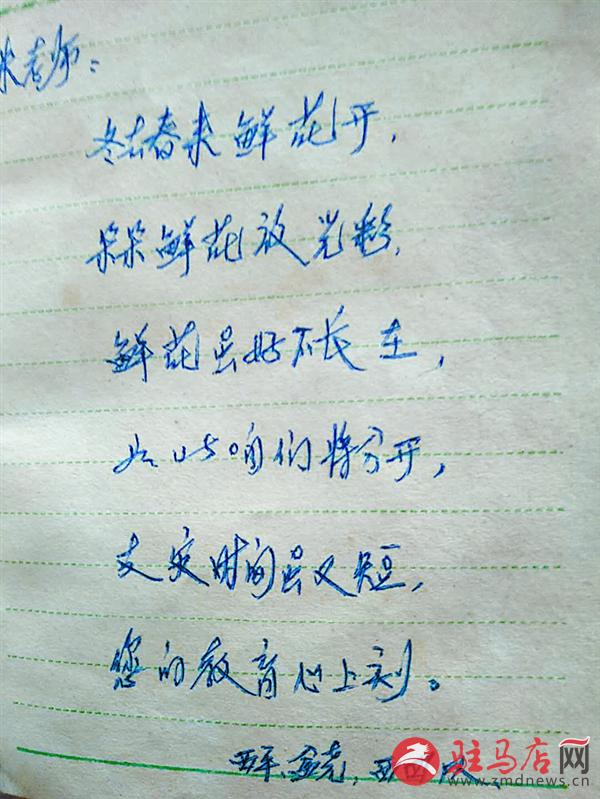 老师：
冬去春来鲜花开，
朵朵鲜花放光彩，
鲜花虽好不长在，
如此咱们将分开，
实时间虽又短，
您的教育心上刻。
驻马店网
www.zmdnews.cn